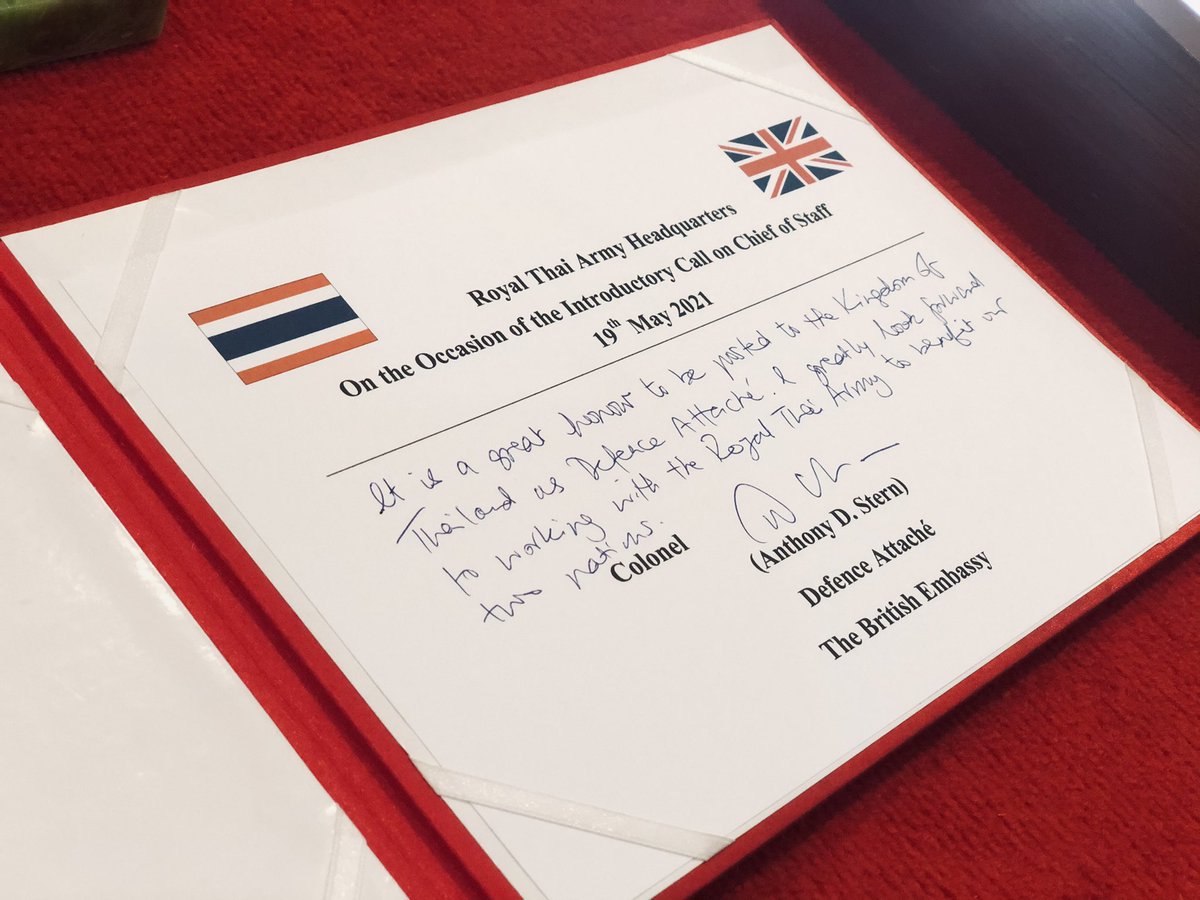 Royal Thai Army Headquarters
On the Occasion of the Introductory Call on Chief of Staff
19th May 2021
It is a great honour to be posted to the Kingdom of
Thailand as Defence Attaché. I greatly look forward
to working with the Royal Thai Army to benefit our
two nations.
Colonel
(Anthony D. Stern)
Defence Attaché
The British Embassy